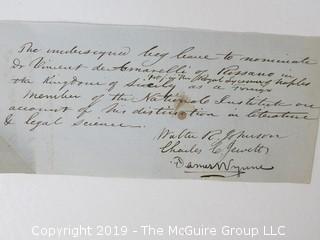 The undersigned beg leave to nominate
Dr Vincent de Amarelli of Rossano in
Prof. of the Royal Lyceum of Naples
the Kingdom of Sicily as a
Member of the National Institute on
account of his distinction in literature
& legal science.
Walter R. Johnson
Charles C Jewett
James Wynne
Copyright © 2019 - The McGuire Group LLC